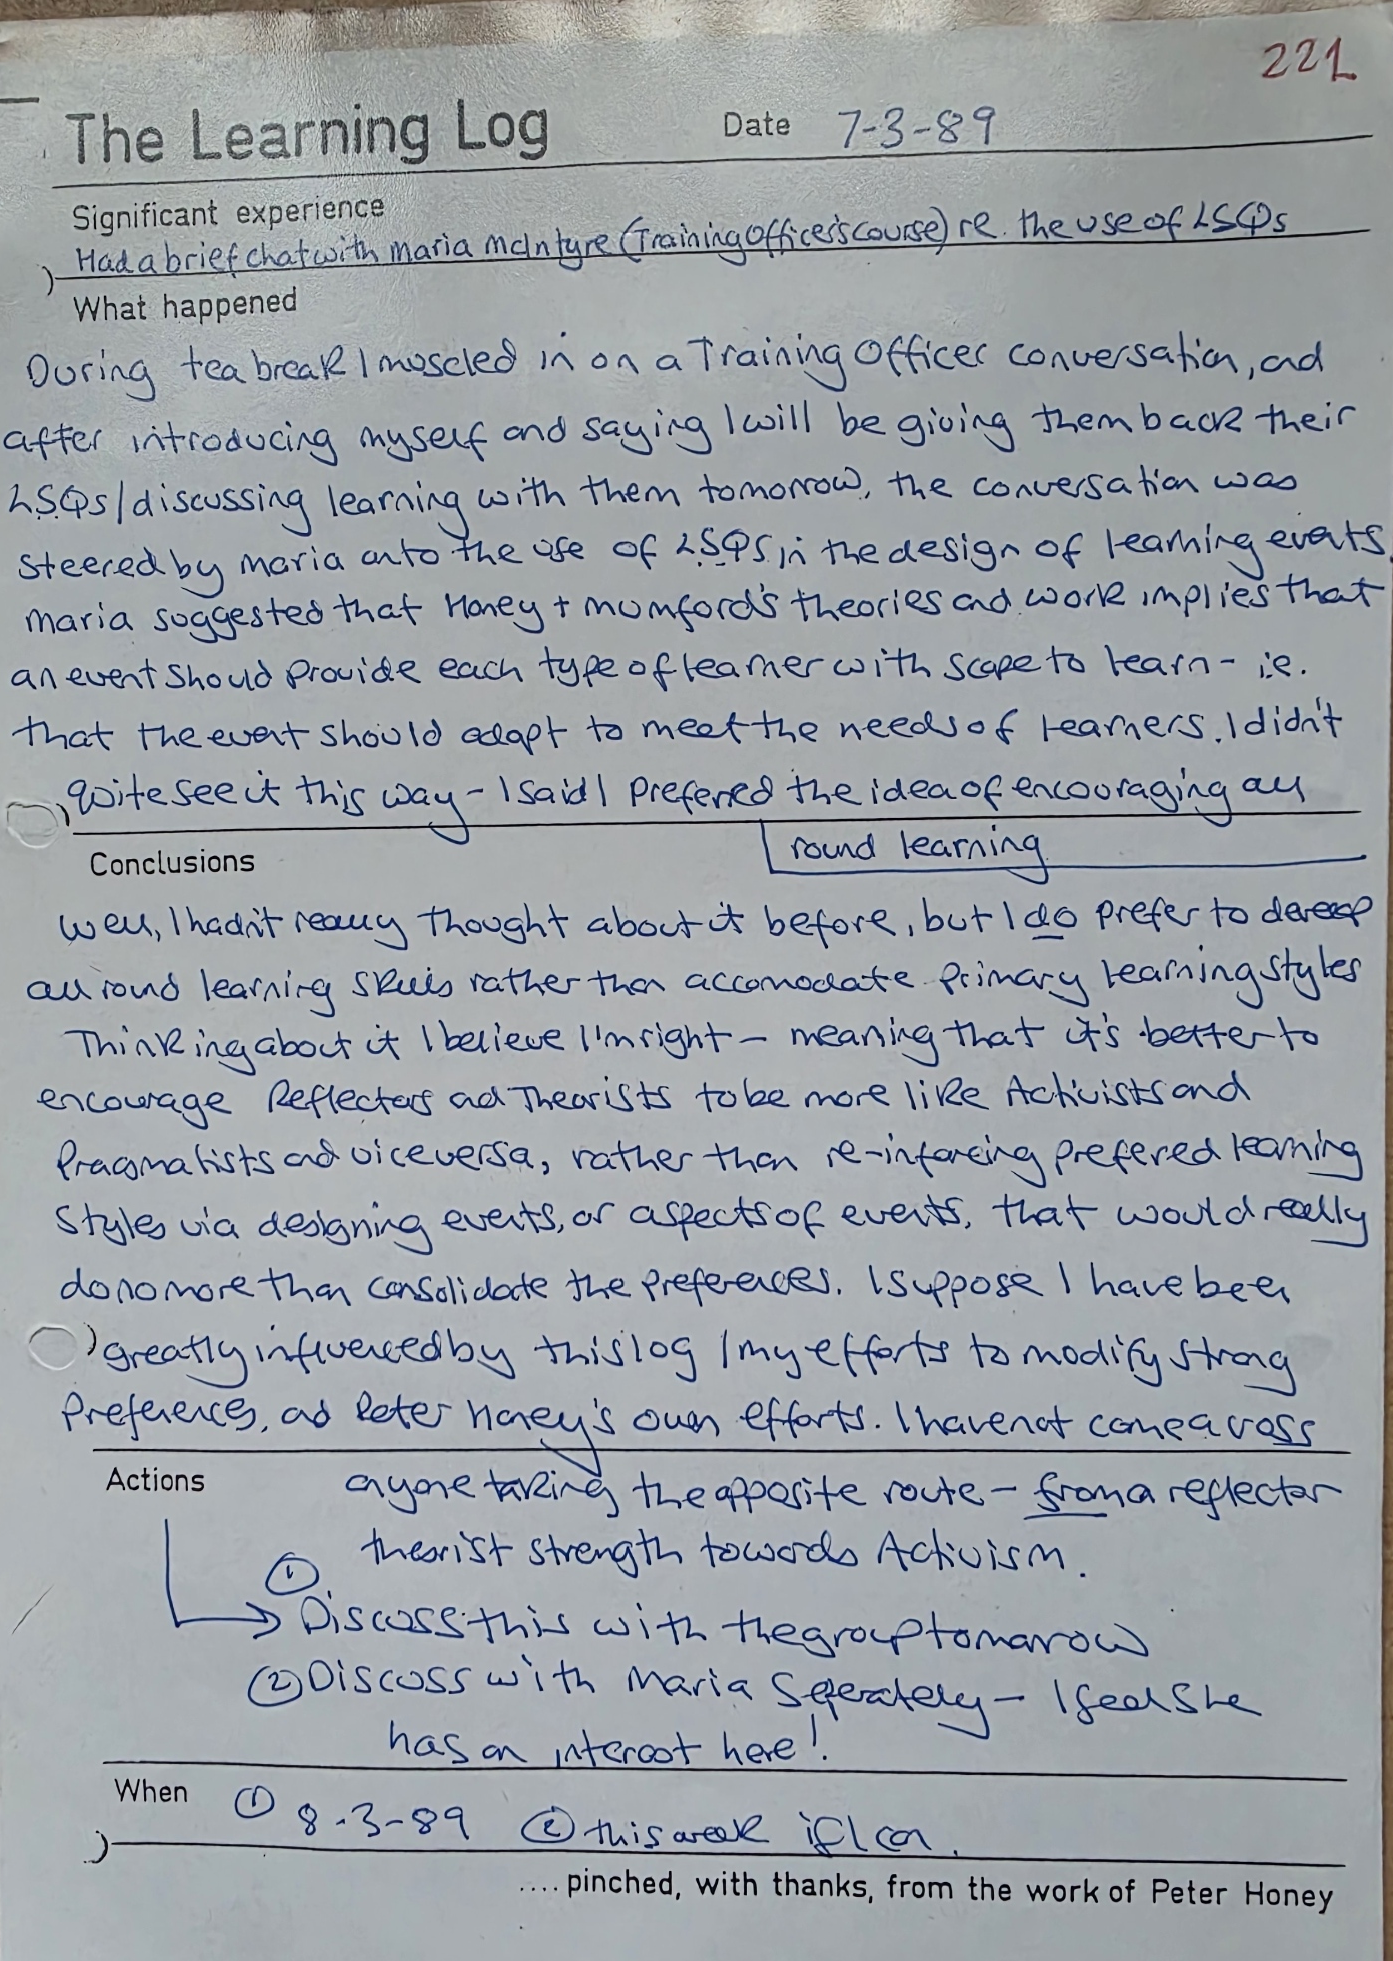 221
The Learning Log Date 7-3-89
Significant experience
Had a brief chat with Maria McIntyre (Training Officer's course) re. the use of LSQs
What happened
During tea break I muscled in on a Training Officer conversation, and
after introducing myself and saying I will be giving them back their
LSQs/discussing learning with them tomorrow, the conversation was
steered by Maria onto the use of LSQs in the design of learning events
Maria suggested that Honey + Mumford's theories and work implies that
an event should provide each type of learner with scope to learn - i.e.
that the event should adapt to meet the needs of learners. I didn't
quite see it this way - I said I preferred the idea of encouraging all
round learning
Conclusions
Well, I hadn't really thought about it before, but I do prefer to develop
all round learning skills rather than accomodate primary learning styles
Thinking about it I believe I'm right - meaning that it's better to
encourage Reflectors and Theorists to be more like Activists and
Pragmatists and vice versa, rather than re-inforcing prefered learning
styles via designing events, or aspects of events, that would really
do no more than consolidate the preferences. I suppose I have been
greatly influenced by this log / my efforts to modify strong
preferences, and Peter Honey's own efforts. I have not come across
Actions anyone taking the opposite route - from a reflector
theorist strength towards Activism.
①
Discuss this with the group tomorrow
② Discuss with Maria Seperately - I feel she
has an interest here!
When ① 8-3-89 ② this week if I can.
.... pinched, with thanks, from the work of Peter Honey